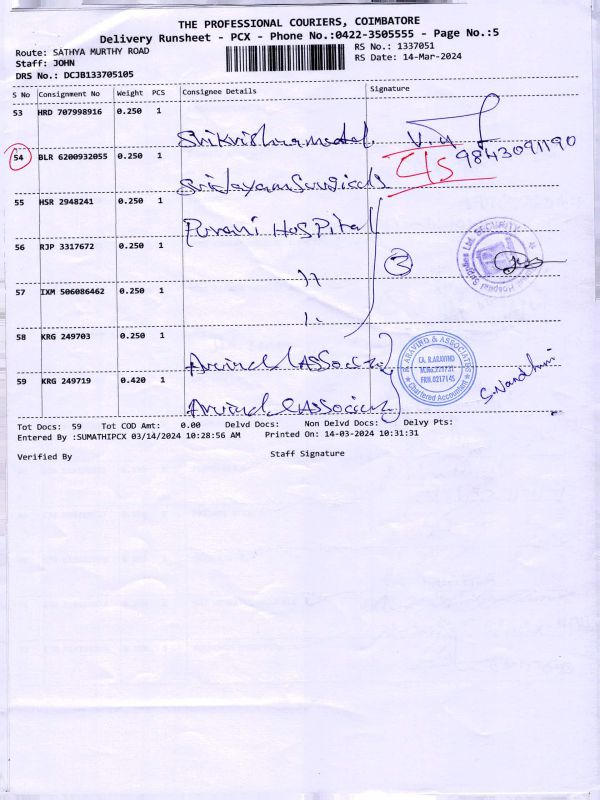 THE PROFESSIONAL COURIERS, COIMBATORE
Delivery Runsheet - PCX - Phone No.:0422-3505555 - Page No.:5
Route: SATHYA MURTHY ROAD
RS No.: 1337051
Staff: JOHN
RS Date: 14-Mar-2024
DRS No.: DCJB133705105
S No Consignment No Weight PCS Consignee Details Signature
53 HRD 707998916 0.250 1
54 BLR 6200932055 0.250 1 C/s 9843091190
55 HSR 2948241 0.250 1
Purani Hospital
56 RJP 3317672 0.250 1
3
SECURITY
57 IXM 506086462 0.250 1
58 KRG 249703 0.250 1
ARAVIND & ASSOCIATES
CA. R.ARAVIND
59 KRG 249719 0.420 1
Chartered Accountant
S. Nandhini
Tot Docs: 59 Tot COD Amt: 0.00 Delvd Docs: Non Delvd Docs: Delvy Pts:
Entered By :SUMATHIPCX 03/14/2024 10:28:56 AM Printed On: 14-03-2024 10:31:31
Verified By Staff Signature